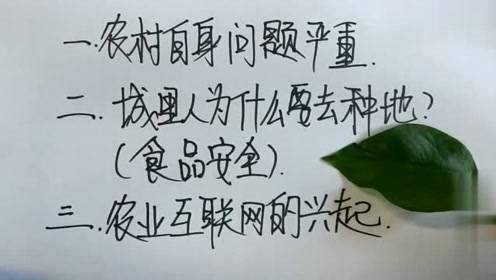 一.农村自身问题严重.
二.城里人为什么要去种地?
(食品安全).
三.农业互联网的兴起.